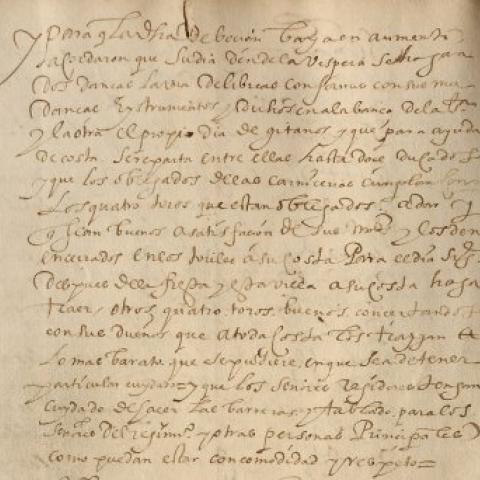 y Para q la dha deboción baya en aumento
acordaron que su dia dende la Vispera se hagan
dos danças la una de libreas conforme con sus mu
danças Ynstrumentos y dichos en alabança de la
y la otra el propio dia de gitanos y que para ayuda
de costa se reparta entre ellas hasta doce ducados
y que los obligados de las carnicerias cumplan
Los quatro toros que estan obligados a dar y
q sean buenos a satisfación de sus mds y los den
encerados en los toriles a su costa Para el dia sigte
despues de la fiesta y esta villa a su costa haga
traer otros quatro toros buenos concertandose
con sus dueños que a toda costa los traygan
Lo mas barato que se pudiere en que se a de tener
particular cuydado = y que los señores regidores tengan
cuydado de hacer las barreras y tablado para los
señores del regimto y otras personas Principales
como puedan estar con comodidad y respeto =